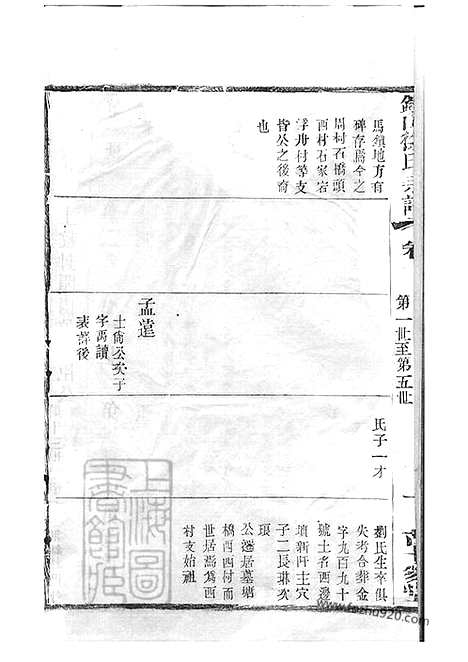 馬鎮地方有
碑存焉今之
周村石橋頭
西村石家宕
浮舟村等支
皆公之後裔
也
孟邅
士衡公次子
字禹讀
表詳後
氏子一才
劉氏生卒俱
失考合葬金
字九百九十
號土者西邊
墳新阡主穴
子二長琳次
琅
公遷居墓塘
橋西西村而
世居焉為西
村支始祖
氏宗譜
卷
第一世至第五世
一
上海圖書館藏
www.fozhu920.com